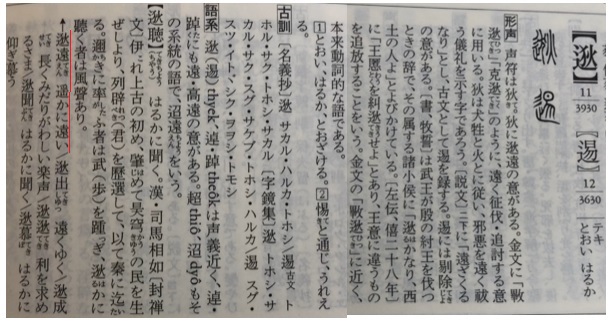 【逖】11 3930 〔逷〕12 3630 テキ とおい はるか
形声 声符は狄。狄に逖遠の意がある。金文に「
逖」「克逖」のように、遠く征伐・追討する意
に用いる。狄は犬牲と火とに従い、邪悪を遠く祓
う儀礼を示す字であろう。〔説文〕二下に「遠ざくる
なり」とし、古文として逷を録する。逷には剔除
の意がある。〔書、牧誓〕は武王が殷の紂王を伐つ
ときの辞で、その属する諸小侯に「逖かなり、西
土の人よ」とよびかけている。〔左伝、僖二十八年〕
に「王慝を糾逖せよ」とあり、王意に違うもの
を追放することをいう。金文の「逖」に近く、
本来動詞的な語である。
①とおい、はるか、とおざける。②惕と通じ、うれえ
る。
古訓 〔名義抄〕逖 サカル・ハルカ・トホシ／逷古文 ト
ホル・サク・トホシ・サカル 〔字鏡集〕逖 トホシ・サ
カル・サク・スグ・サケブ・トホシ・ハルカ／逷 スグ・
スツ・イト・シク・ヲヲシ・トモシ
語系 逖(逷) thyek、逴・踔 theôk は声義近く、逴・
踔にも遠・高遠の意がある。超 thiô、迢 dyô もそ
の系統の語で、迢遠をいう。
【逖聴】 はるかに聞く。漢・司馬相如〔封禅
文〕伊れ上古の初め、肇めて昊穹の民を生
ぜしより、列辟(君)を歴選して、以て秦に迄い
る。邇きに率ふ者は武(歩)を踵ぎ、逖かに
聴く者は風聲あり。
↑逖遠 遥かに遠い／逖出 遠くゆく／逖成
長くみだりがわしい楽声／逖逖 利を求め
るさま／逖聞 はるかに聞く／逖慕 はるかに
仰ぎ慕う